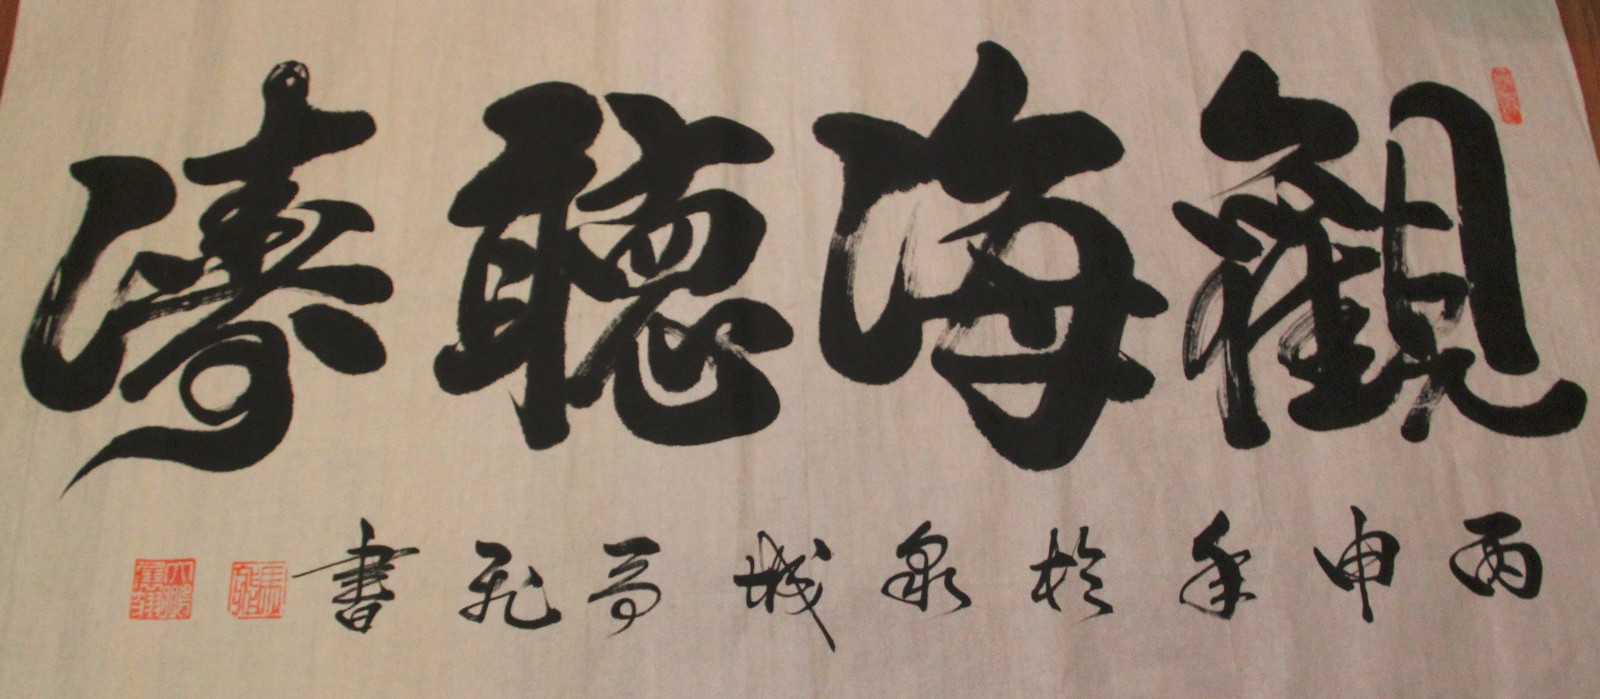 觀海聽濤
丙申年於泉城高飛書